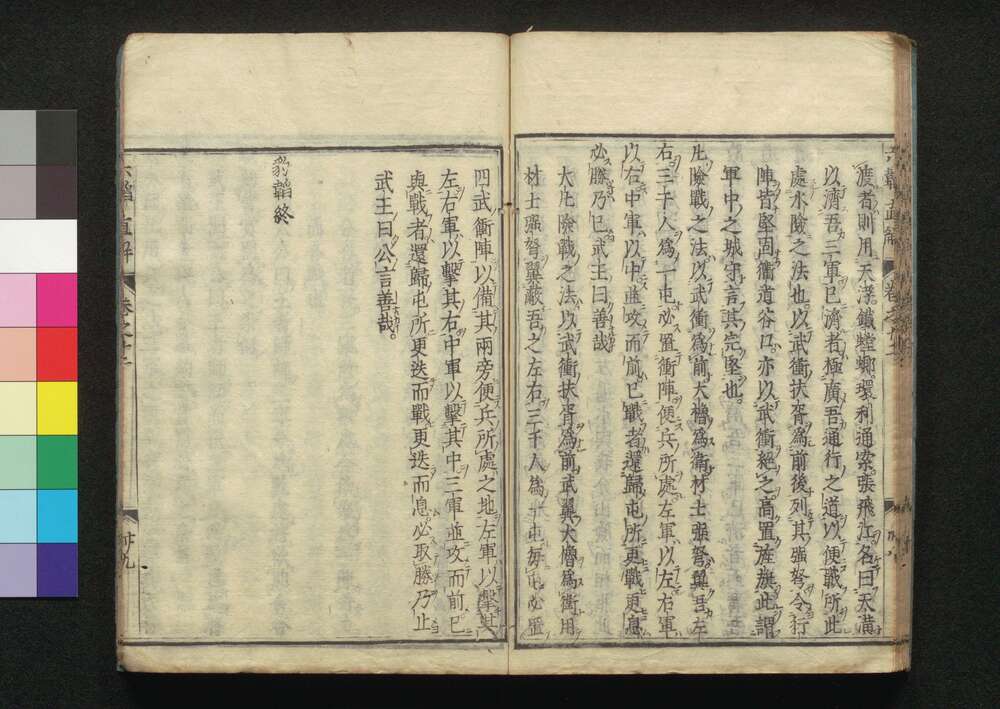 渡者則用天浮鐵螳螂環利通索張飛江名曰天潢
以濟吾三軍已濟者極廣吾通行之道以便戰所此
處水險之法也以武衝扶胥為前後列其強弩令行
陣皆堅固衢道谷口亦以武衝絕之高置旌旗此謂
軍中之城守言其完堅也
凡險戰之法以武衝為前大櫓為衛材士强弩翼吾左
右三千人為一屯必置衝陣便兵所處左軍以左右軍
以右中軍以中並攻而前已戰者還歸屯所更戰更息
必勝乃已武王曰善哉
大凡險戰之法以武衝扶胥為前武翼大櫓為衛用
材士强弩翼蔽吾之左右三千人為一屯每屯必置
四武衝陣以備其兩旁便兵所處之地左軍以擊其
左右軍以擊其右中軍以擊其中三軍並攻而前已
與戰者還歸屯所更迭而戰更迭而息必取勝乃止
武王曰公言善哉
豹韜終
六韜直解
卷之十二
廿九